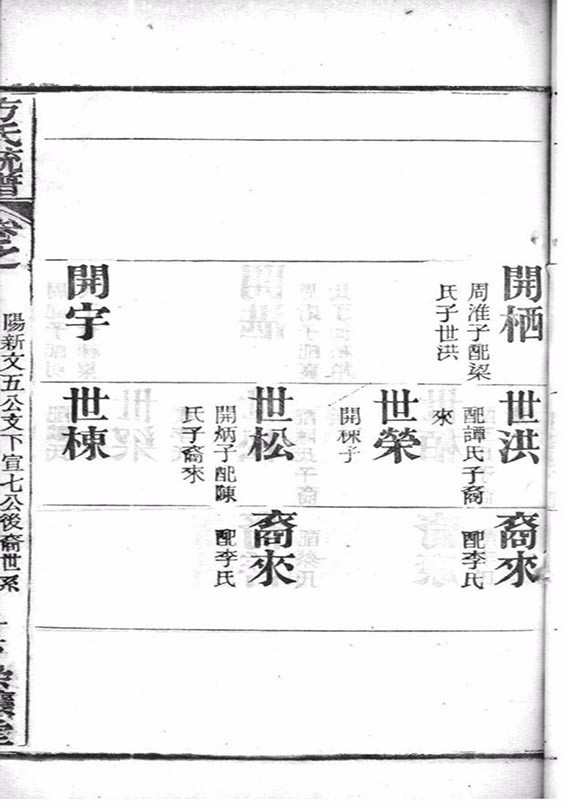 開栖
周淮子配梁
氏子世洪
開宇
世洪
配譚氏子裔
來
世榮
開棟子
世松
開炳子配陳
氏子裔來
世棟
裔來
配李氏
裔來
配李氏
方氏統譜
卷之
陽新文五公支下宣七公後裔世系